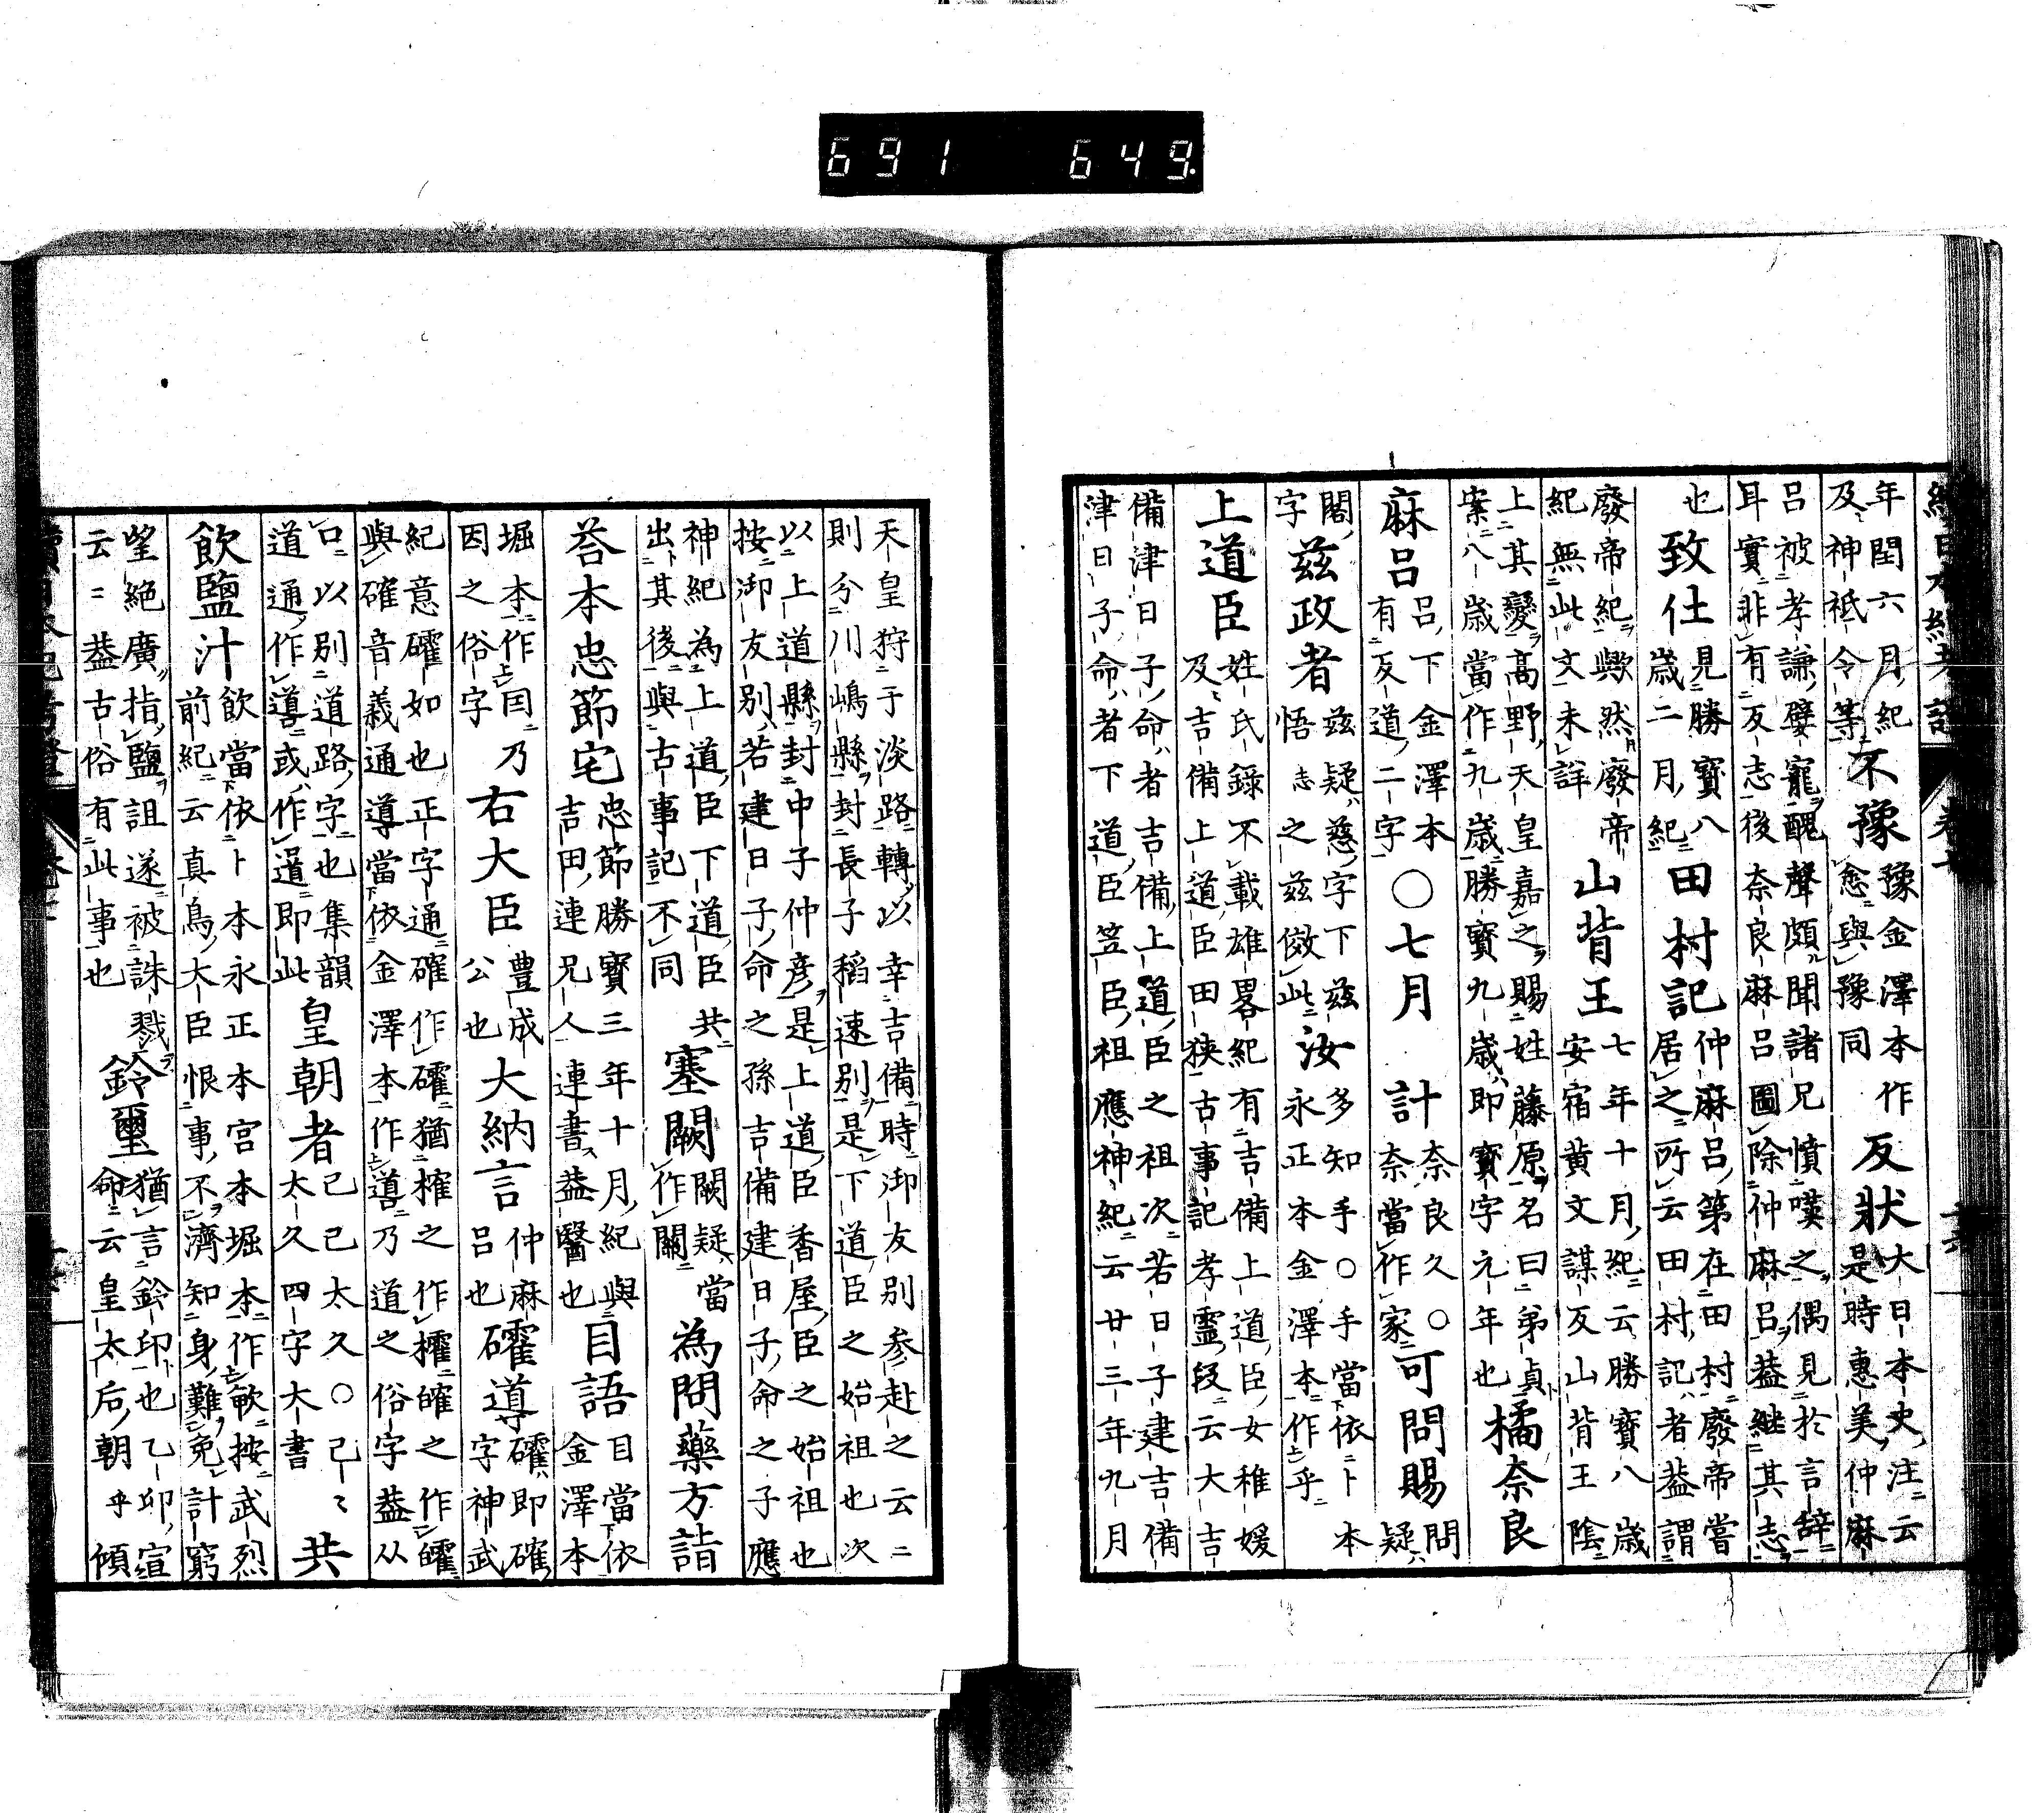 691 649.
年閏六月紀
及神祇令等
不豫
豫金澤本作
愈與豫同
反狀
大日本史注云
是時惠美仲麻
呂被孝謙嬖寵醜聲頗聞諸兄憤嘆之偶見於言辭
耳實非有反志後奈良麻呂圖除仲麻呂蓋繼其志
也
致仕
見勝寶八
歳二月紀
田村記
仲麻呂第在田村廢帝嘗
居之所云田村記者蓋謂
廢帝紀歟然廢帝
紀無此文未詳
山背王
七年十月紀云勝寶八歳
安宿黄文謀反山背王陰
上其變高野天皇嘉之賜姓藤原名曰弟貞
案八歳當作九歳勝寶九歳即寶字元年也
橘奈良
麻呂
呂下金澤本
有反道二字
○七月
計
奈良久○
奈當作家
可問賜
問
疑
閣
字
茲政者
茲疑慈字下茲
悟志之茲傚此
汝
多知手○手當依卜本
永正本金澤本作乎
上道臣
姓氏錄不載雄畧紀有吉備上道臣女稚媛
及吉備上道臣田狹古事記孝靈段云大吉
備津日子命者吉備上道臣之祖次若日子建吉備
津日子命者下道臣笠臣祖應神紀云廿三年九月
天皇狩于淡路轉以幸吉備時御友別参赴之云云
則分川嶋縣封長子稻速別是下道臣之始祖也次
以上道縣封中子仲彦是上道臣香屋臣之始祖也
按御友別若建日子命之孫吉備建日子命之子應
神紀為上道臣下道臣共
出其後與古事記不同
塞闕
闕疑當
作關
為問藥方詣
荅本忠節宅
忠節勝寶三年十月紀與
吉田連兄人連書蓋醫也
目語
目當依
金澤本
堀本作囙乃
因之俗字
右大臣
豊成
公也
大納言
仲麻
呂也
礭導
礭即確
字神武
紀意礭如也正字通確作礭猶榷之作㩁皠之作皬
與確音義通導當依金澤本作噵乃道之俗字蓋从
口以別道路字也集韻
道通作導或作噵即此
皇朝者
己己太久○己己
太久四字大書
共
飲鹽汁
飲當依卜本永正本宮本堀本作歃按武烈
前紀云真鳥大臣恨事不濟知身難免計窮
望絶廣指鹽詛遂被誅戮
云云蓋古俗有此事也
鈴璽
猶言鈴印也乙卯宣
命云皇太后朝乎傾